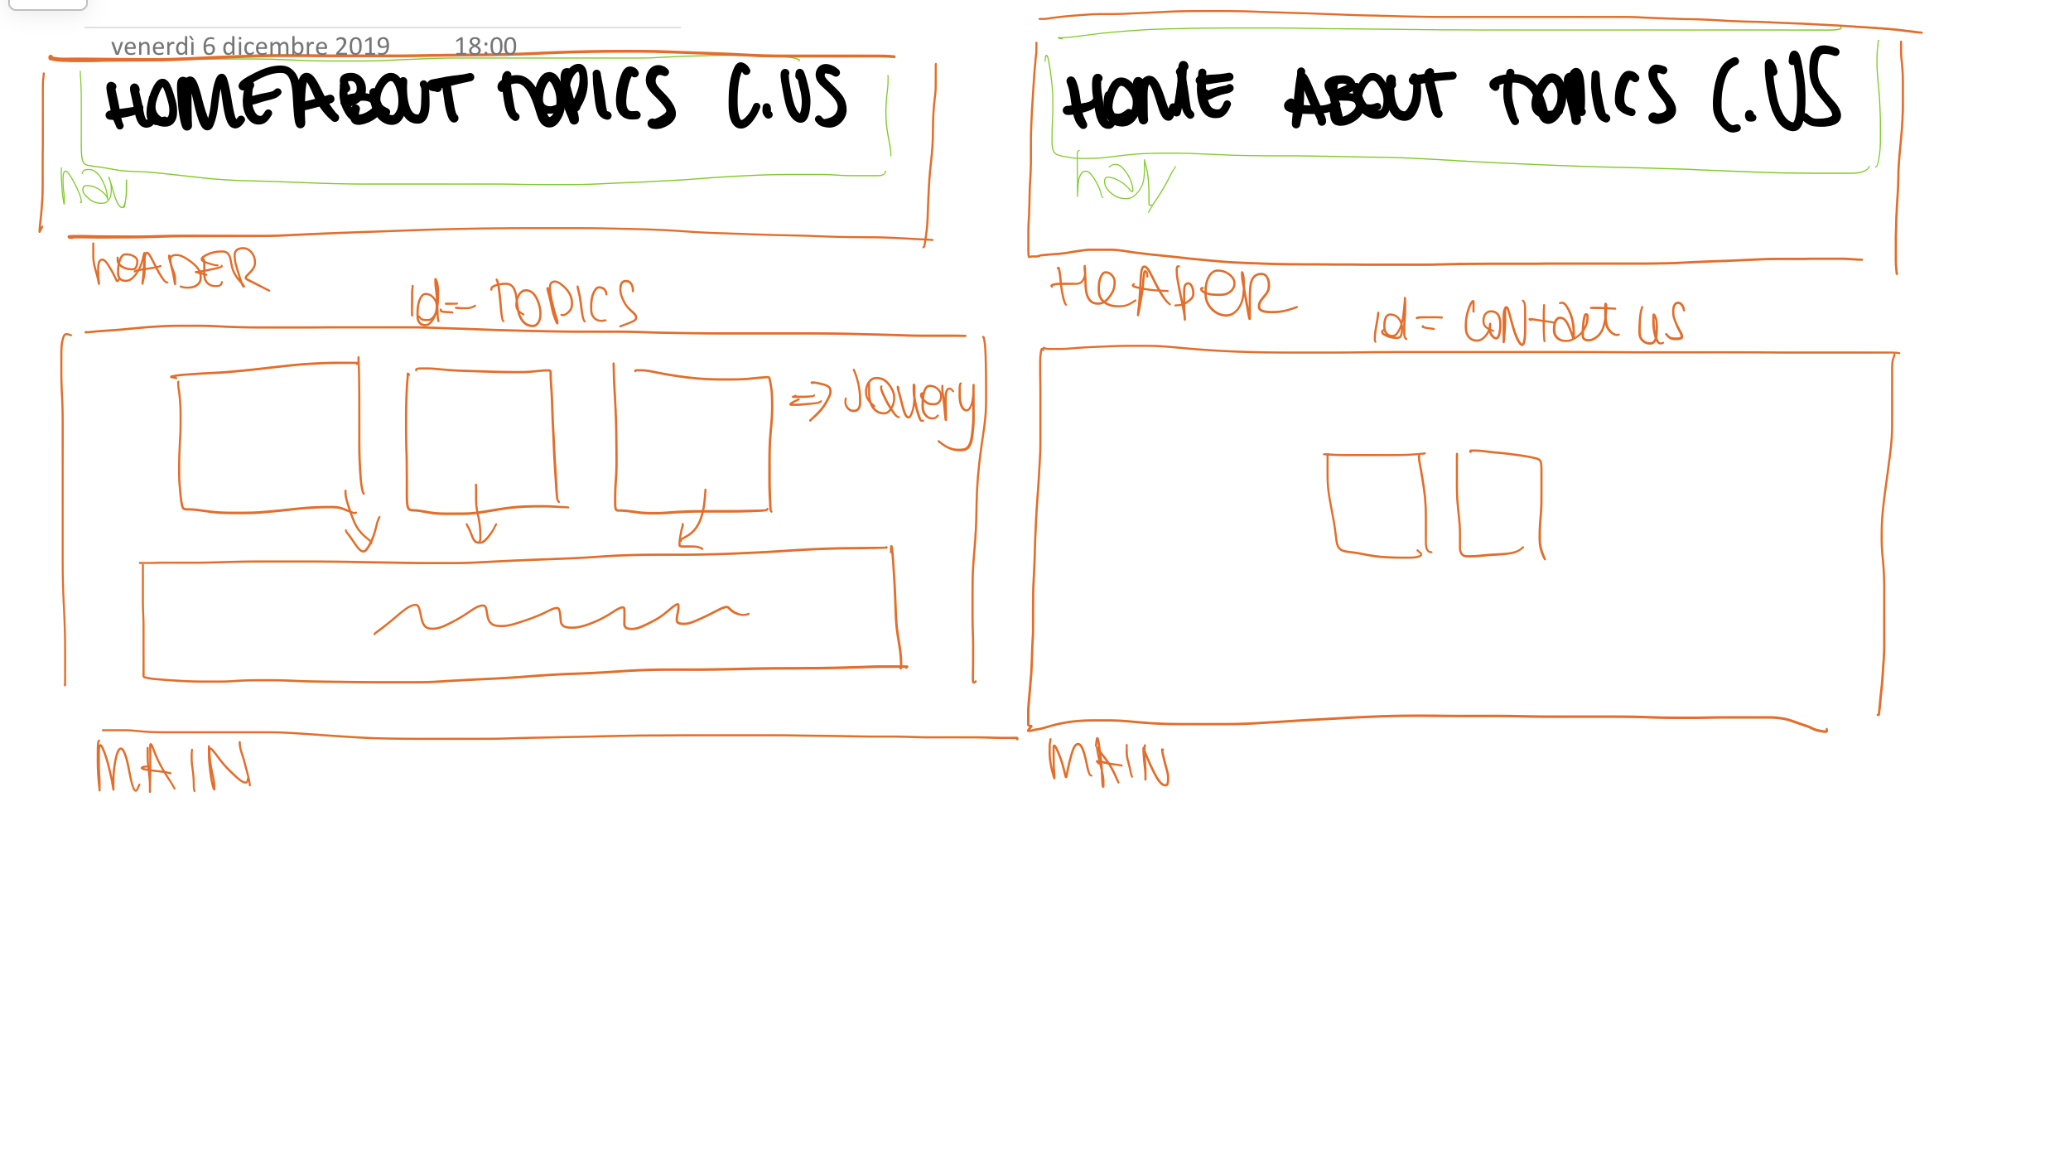 venerdì 6 dicembre 2019 18:00
HOME ABOUT TOPICS C.US
nav
HEADER
id= TOPICS
=> JQuery
MAIN
HOME ABOUT TOPICS C.US
nav
HEADER
id= contact us
MAIN